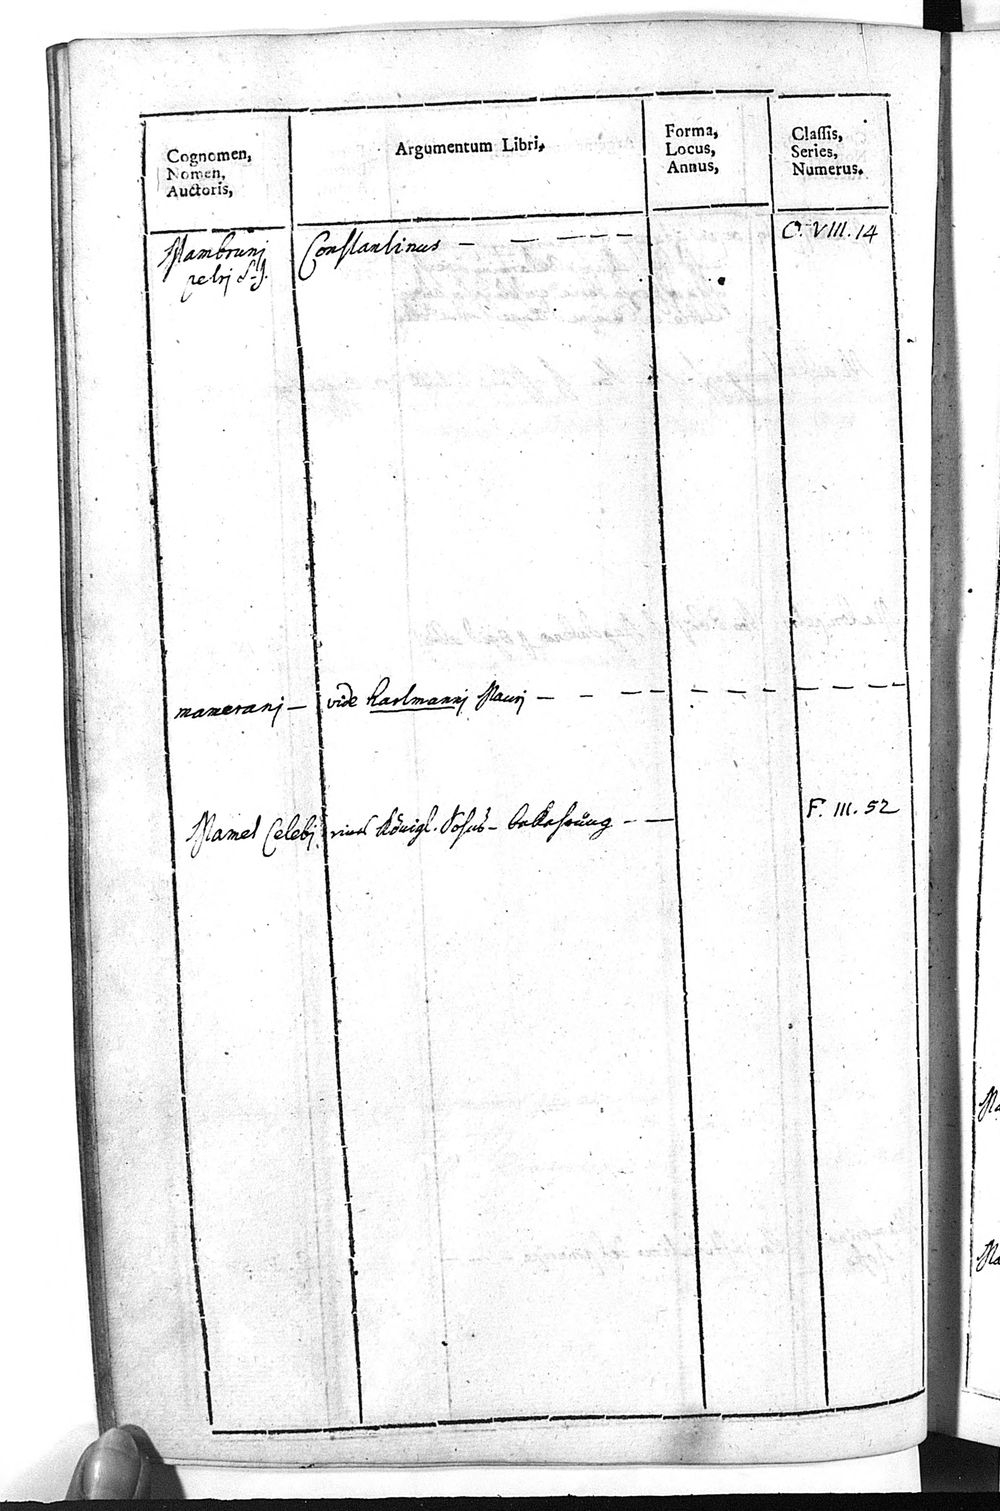 Cognomen,
Nomen,
Auctoris,
Argumentum Libri,
Forma,
Locus,
Annus,
Classis,
Series,
Numerus.
Mambrunj Constantinus — — — — — O. VIII. 14
petrj S. J.
mameranj — vide Hartmannj Maurj — — — — — — — — — —
Mamet Celebj Königl. Sohns- bekehrung — — F. III. 52